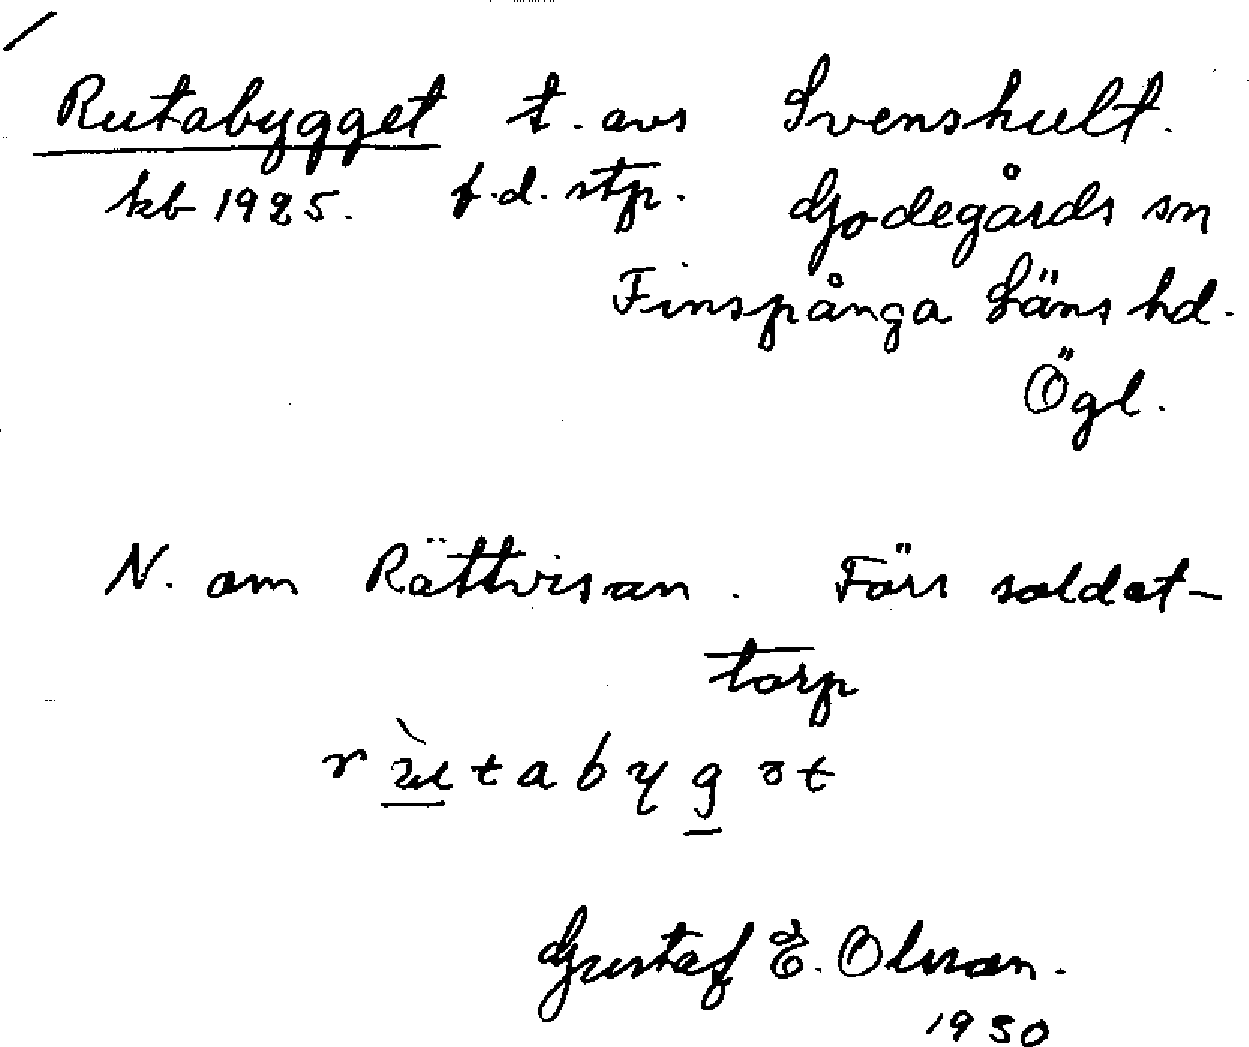 Rutabygget t. avs Svenshult.
kb 1925. f.d. stp. Godegårds sn
Finspånga Läns hd.
Ögl.
N. om Rättvisan. Förs soldat-
torp
r ù t a b y g ə t
Gustaf E. Olsson.
1930